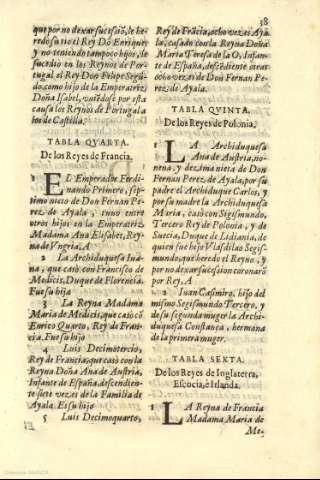 38
que por no dexar sucesió, le he-
redò su tio el Rey Dõ Enrique;
y no teniendo tampoco hijos, le
sucedio en los Reynos de Por-
tugal el Rey Don Felipe Segũ-
do, como hijo de la Emperatriz
Doña Isabel, vniẽdose por esta
causa los Reynos de Portugal a
los de Castilla.
TABLA QVARTA.
De los Reyes de Francia.
1 EL Emperador Ferdi-
nando Primero, sep-
timo nieto de Don Fernan Pe-
rez de Ayala, tuuo entre
otros hijos en la Emperatriz
Madama Ana Elisabet, Rey-
na de Vngria, A
2 La Archiduquesa Iua-
na, que casò con Francisco de
Medicis, Duque de Florencia.
Fue su hija
3 La Reyna Madama
Maria de Medicis, que casò cõ
Enrico Quarto, Rey de Fran-
cia. Fue su hijo
4 Luis Decimotercio,
Rey de Francia, que casò con la
Reyna Doña Ana de Austria,
Infante de España, descendien-
te siete vezes de la Familia de
Ayala. Es su hijo
5 Luis Decimoquarto,
Rey de Frãcia, ocho vezes Aya-
la, casado con la Reyna Doña
Maria Teresa de la O, Infan-
te de España, descẽdiente otras
ocho vezes de Don Fernan Pe-
rez de Ayala.
TABLA QVINTA.
De los Reyes de Polonia.
1 LA Archiduquesa
Ana de Austria, no-
uena, y dezima nieta de Don
Fernan Perez de Ayala, por su
padre el Archiduque Carlos, y
por su madre la Archiduquesa
Maria, casò con Sigismundo,
Tercero Rey de Polonia, y de
Suecia, Duque de Lidiania, de
quien fue hijo Vlasdilao Segis-
mundo, que heredo el Reyno, y
por no dexar sucesion coronarõ
por Rey, A
2 Iuan Casimiro, hijo del
mismo Segismundo Tercero, y
de su segunda muger la Archi-
duquesa Constança, hermana
de la primera muger.
TABLA SEXTA.
De los Reyes de Inglaterra,
Escocia, è Irlanda.
1 LA Reyna de Francia
Madama Maria de
Me-